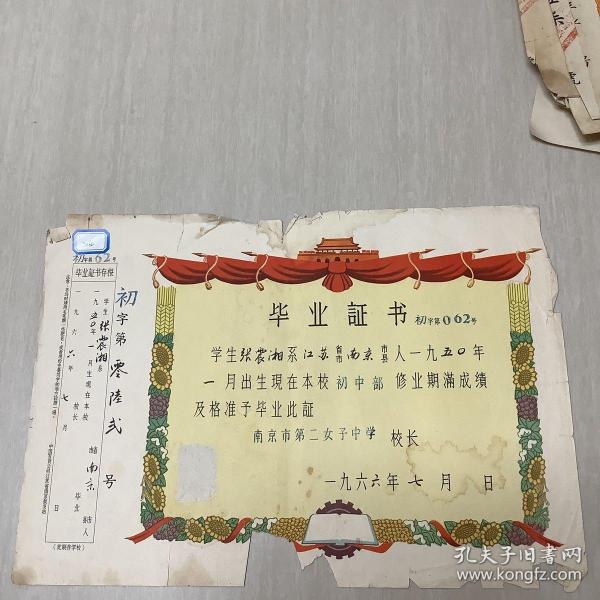 毕业証书
初字第062号
学生张震湘系江苏省市南京市县人一九五〇年
一月出生現在本校初中部修业期滿成績
及格准予毕业此証
南京市第二女子中学 校长
一九六六年七月 日
初字第零陆弍号
初字第62号
毕业証书存根
学生张震湘系
南京
一九五〇年一月生現在本校
毕业
校长
一九六六年七月 日
孔夫子旧书网
www.kongfz.com